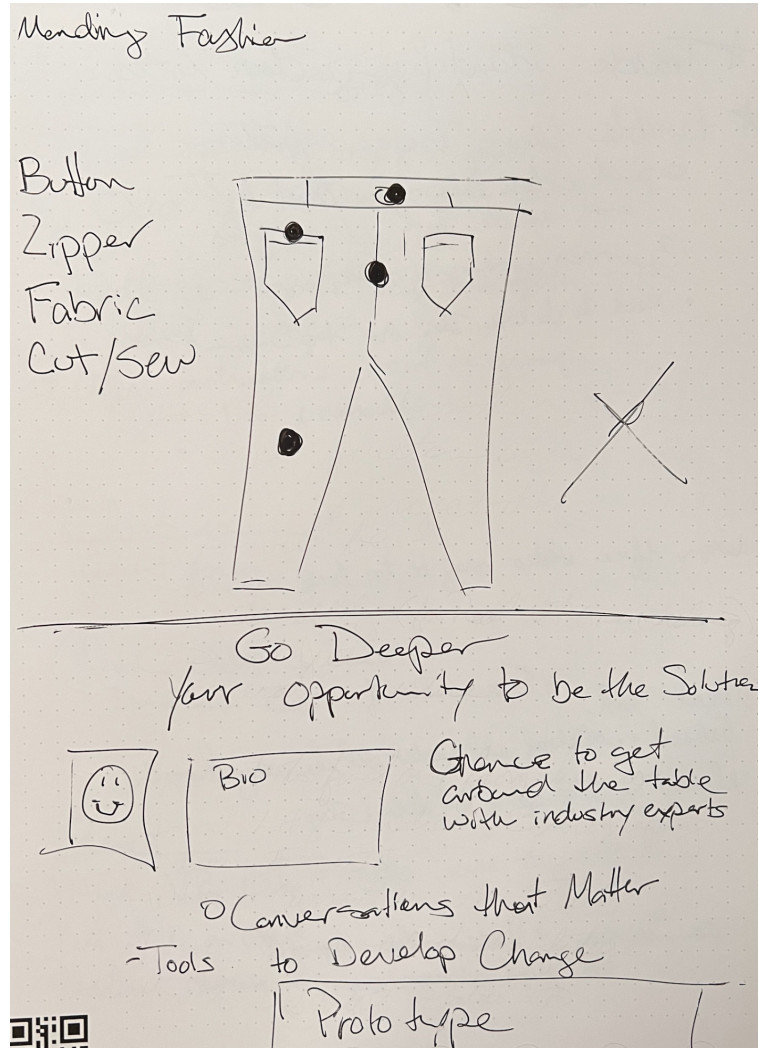 Mending Fashion
Button
Zipper
Fabric
Cut/Sew
Go Deeper
Your opportunity to be the Solution
Bio
Chance to get
around the table
with industry experts
Conversations that Matter
-Tools to Develop Change
Prototype